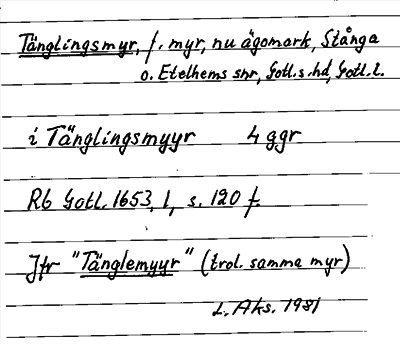 Tänglingsmyr, f. myr, nu ägomark, Stånga
o. Etelhems snr, Gotl. s. hd, Gotl. l.
i Tänglingsmyyr 4 ggr
Rb Gotl. 1653, 1, s. 120 f.
Jfr "Tänglemyyr" (trol. samma myr)
L. Aks. 1981